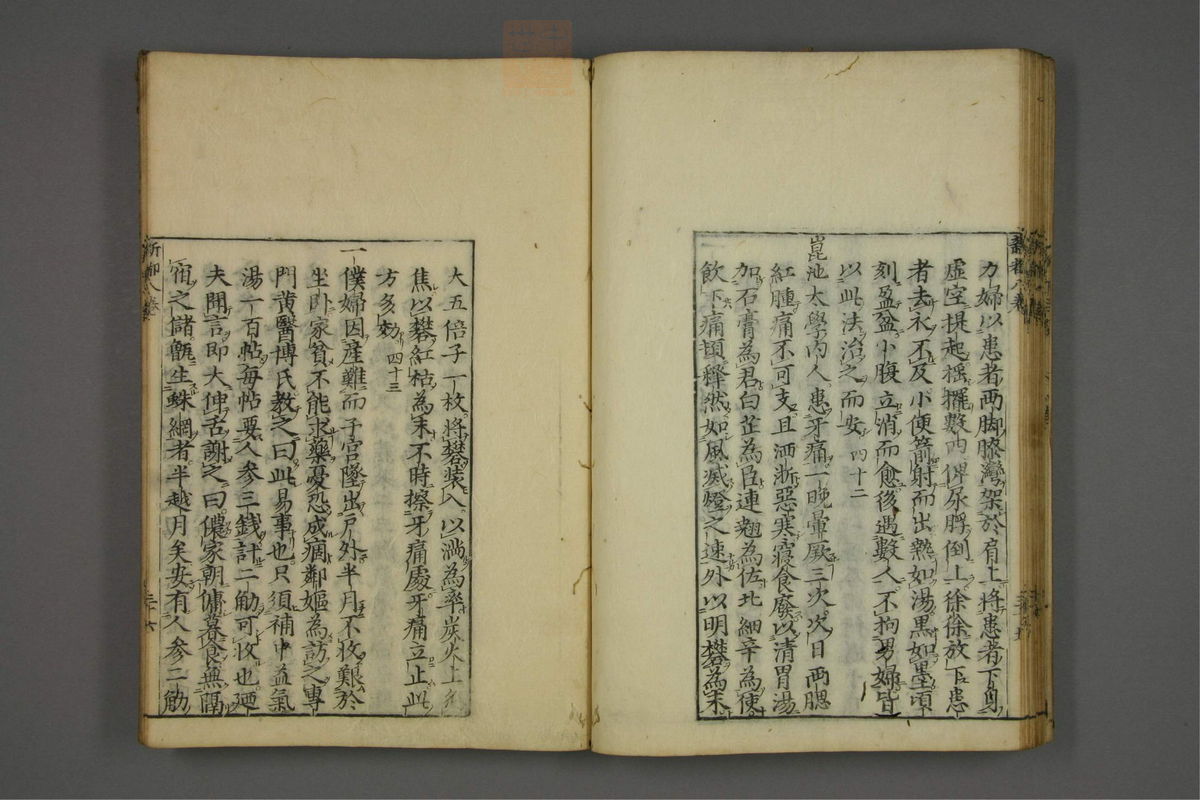 力婦以患者両脚膝灣架於肩上將患者下身
虛空提起搖擺數四俾尿脬倒上徐徐放下患
者去衣不及小便箭射而出熱如湯黒如墨頃
刻盈盆小腹立消而愈後遇數人不拘男婦皆
以此法治之而安 四十二
崑池太學內人患牙痛一晚暈厥三次次日両腮
紅腫痛不可支且洒淅惡寒寢食廢以清胃湯
加石膏為君白芷為臣連翹為佐北細辛為使
飲下痛頓釋然如風滅燈之速外以明礬為末
大五倍子一枚將礬裝入以滿為率炭火上
焦以礬紅枯為末不時擦牙痛處牙痛立止此
方多効 四十三
一僕婦因產難而子宮墜出戶外半月不收艱於
坐卧家貧不能求藥憂恐成痼鄰嫗為訪之專
門黄醫博氏教之曰此易事也只須補中益氣
湯一百帖每帖要人參三錢計二觔可收也廼
夫聞言即大伸舌謝之曰儂家朝傭暮食無隔
宿之儲甑生蛛網者半越月矣安有人參二觔